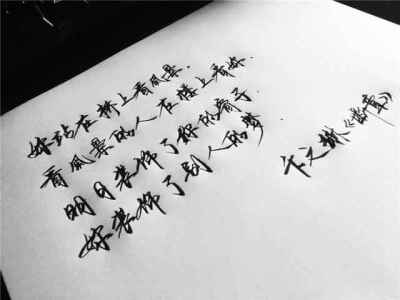 你站在桥上看风景.
看风景的人在楼上看你.
明月装饰了你的窗子.
你装饰了别人的梦
卞之琳《断章》